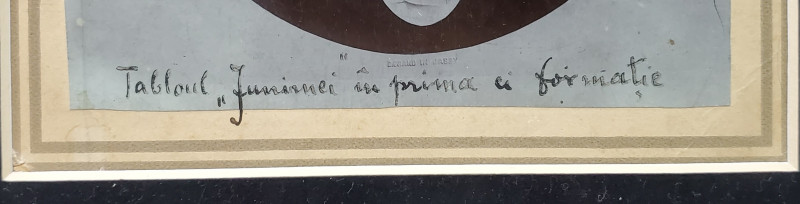 Tabloul „Junimei” în prima ei formație